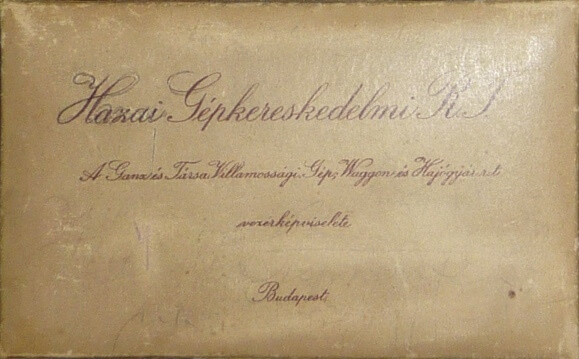 Hazai Gépkereskedelmi R.T.
A Ganz és Társa Villamossági, Gép, Waggon és Hajógyár r.t.
vezérképviselete
Budapest.